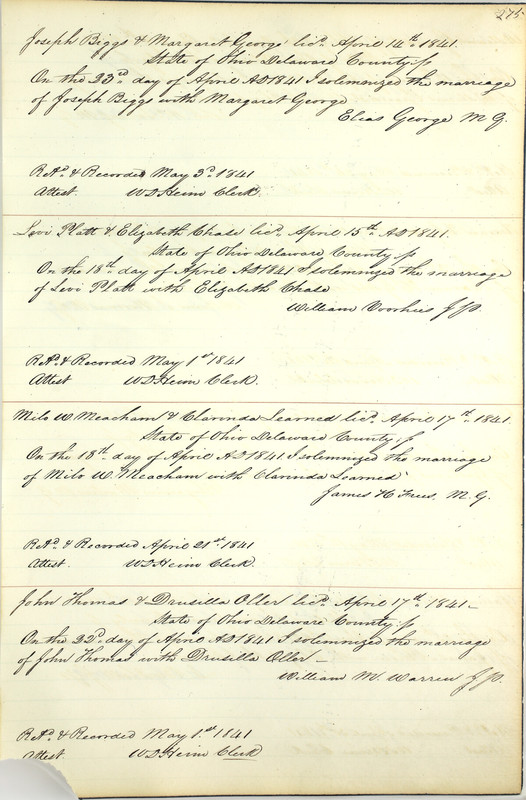 275
Joseph Biggs & Margaret George licd. April 14th 1841.
State of Ohio Delaware County ss
On the 23d. day of April AD 1841 I solemnized the marriage
of Joseph Biggs with Margaret George
Elias George M G.
Retd. & Recorded May 3d. 1841
Attest. W D Heim Clerk.
Levi Platt & Elizabeth Chase licd. April 15th AD 1841.
State of Ohio Delaware County ss
On the 18th day of April AD 1841 I solemnized the marriage
of Levi Platt with Elizabeth Chase
William Voorhies J P.
Retd. & Recorded May 1st 1841
Attest W D Heim Clerk.
Milo W. Meacham & Clarinda Learned licd. April 17th 1841.
State of Ohio Delaware County ss
On the 18th day of April AD 1841 I solemnized the marriage
of Milo W. Meacham with Clarinda Learned
James H. Frees. M. G.
Retd. & Recorded April 21st 1841
Attest. W D Heim Clerk.
John Thomas & Drusilla Oller licd. April 17th 1841-
State of Ohio Delaware County ss
On the 22d. day of April AD 1841 I solemnized the marriage
of John Thomas with Drusilla Oller-
William M. Warren J P.
Retd. & Recorded May 1st. 1841
Attest. W D Heim Clerk